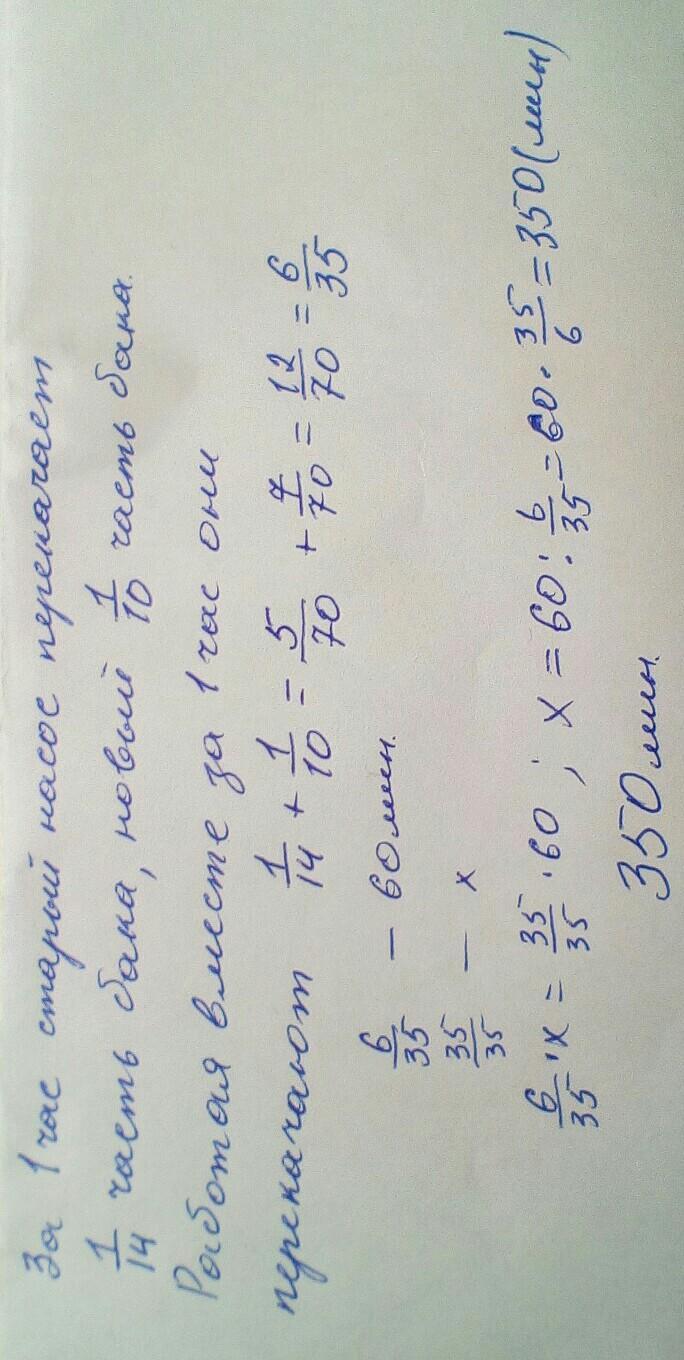 За 1 час старый насос перекачает
1/14 часть бака, новый 1/10 часть бака.
Работая вместе за 1 час они
перекачают 1/14 + 1/10 = 5/70 + 7/70 = 12/70 = 6/35
6/35 – 60 мин.
35/35 – x
6/35 · x = 35/35 · 60 ; x = 60 : 6/35 = 60 · 35/6 = 350 (мин)
350 мин.